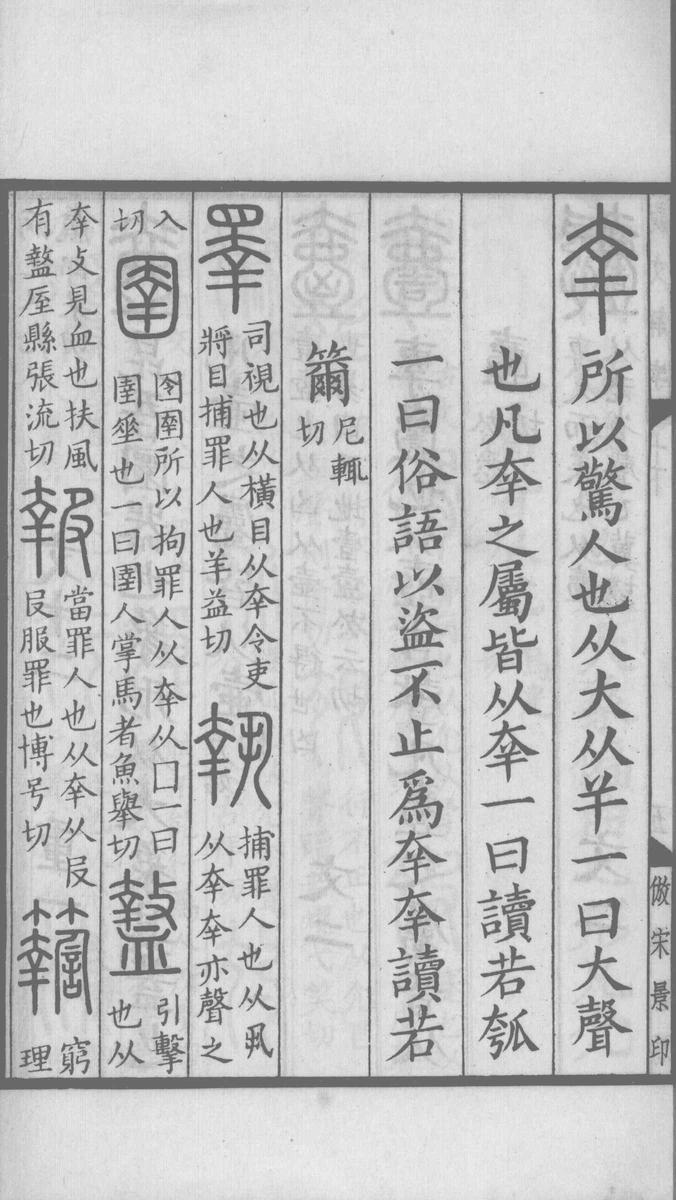 㚔所以驚人也从大从𢆉一曰大聲
也凡㚔之屬皆从㚔一曰讀若瓠
一曰俗語以盜不止爲㚔㚔讀若
籋
尼輒
切
睪
司視也从橫目从㚔令吏
將目捕罪人也羊益切
執
捕罪人也从丮
从㚔㚔亦聲之
入
切
圉
囹圄所以拘罪人从㚔从囗一曰
圉垂也一曰圉人掌馬者魚舉切
盩
引擊
也从
㚔攴見血也扶風
有盩厔縣張流切
報
當罪人也从㚔从𠬝
𠬝服罪也博号切
𥷚
窮
理
倣宋景印